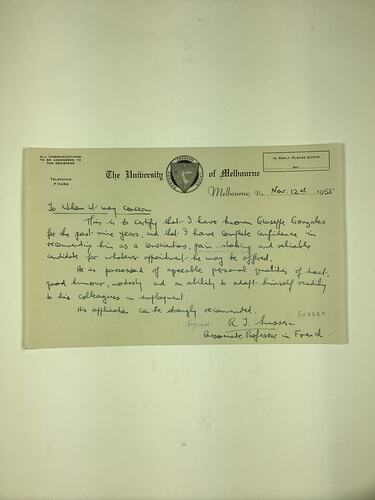 ALL COMMUNICATIONS
TO BE ADDRESSED TO
THE REGISTRAR
TELEPHONE
F 0484
The University of Melbourne
IN REPLY PLEASE QUOTE
NO.
Melbourne, N.3 Nov. 12th 1955
To Whom it may concern
This is to certify that I have known Giuseppe Gonzales
for the past nine years and that I have complete confidence in
recommending him as a conscientious, pain-staking and reliable
candidate for whatever appointment he may be offered.
He is possessed of agreeable personal qualities of tact,
good humour, modesty and an ability to adapt himself readily
to his colleagues in employment.
His application can be strongly recommended.
Signed R. T. Sussex SUSSEX
Associate Professor in French